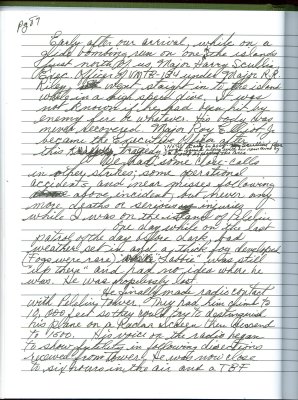 Pg 87
Early after our arrival, while on a
glide bombing run on one of the islands
just north of us, Major Harry Scullin,
Exec Officer of VMTB-134 under Major R.R.
Riley, went straight in to the island
while in a high speed dive. It was
not known if he had been hit by
enemy fire or whatever. His body was
never recovered. Major Roy E.
became the Executive Officer
this tragic
We had some close calls
in other strikes; some operational
accidents and near misses following
above incident, but never any
more deaths or serious injury
while I was on the island of Peleliu.
One day while on the last
patrol of the day before dark, bad
weather set in and a thick fog developed
(Fogs were rare). was still
"up there" and had no idea where he
was. He was hopelessly lost.
He finally made radio contact
with Peleliu Tower. They had him climb to
10,000 feet so they could try to distinguish
his plane on a Radar Screen then descend
to 1500. His voice on the radio began
to show futility in following directions
received from tower. He was now close
to six hours in the air and a TBF